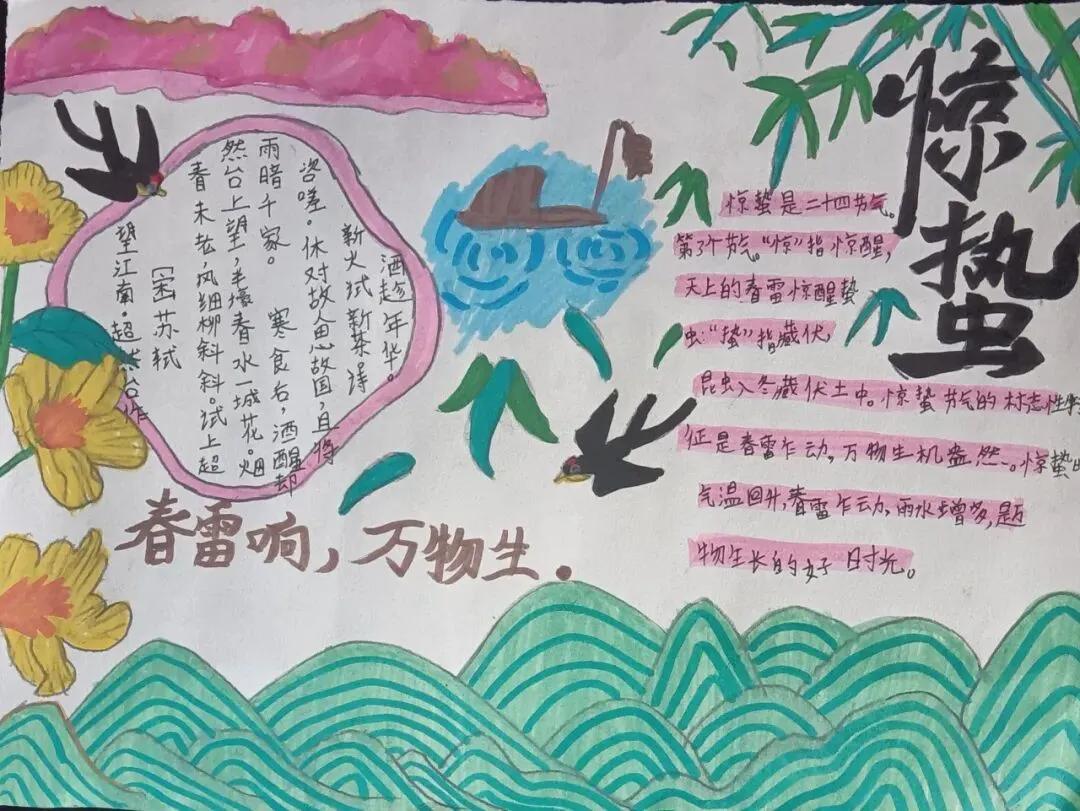 惊蛰
望江南·超然台作
[宋]苏轼
春未老,风细柳斜斜。试上超
然台上望,半壕春水一城花。烟
雨暗千家。 寒食后,酒醒却
咨嗟。休对故人思故国,且将
新火试新茶诗
酒趁年华。
春雷响,万物生.
惊蛰是二十四节气。
第3个节气。"惊"指惊醒,
天上的春雷惊醒蛰
虫"蛰"指藏伏,
昆虫入冬藏伏土中。惊蛰节气的村志性
征是春雷乍动,万物生机盎然。惊蛰
气温回升,春雷乍动,雨水增多,是万
物生长的好时光。